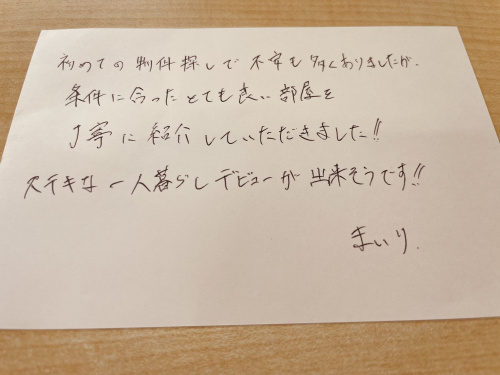 初めての物件探しで不安も多くありましたが、
条件に合ったとても良い部屋を
丁寧に紹介していただきました!!
ステキな一人暮らしデビューが出来そうです!!
まいり.